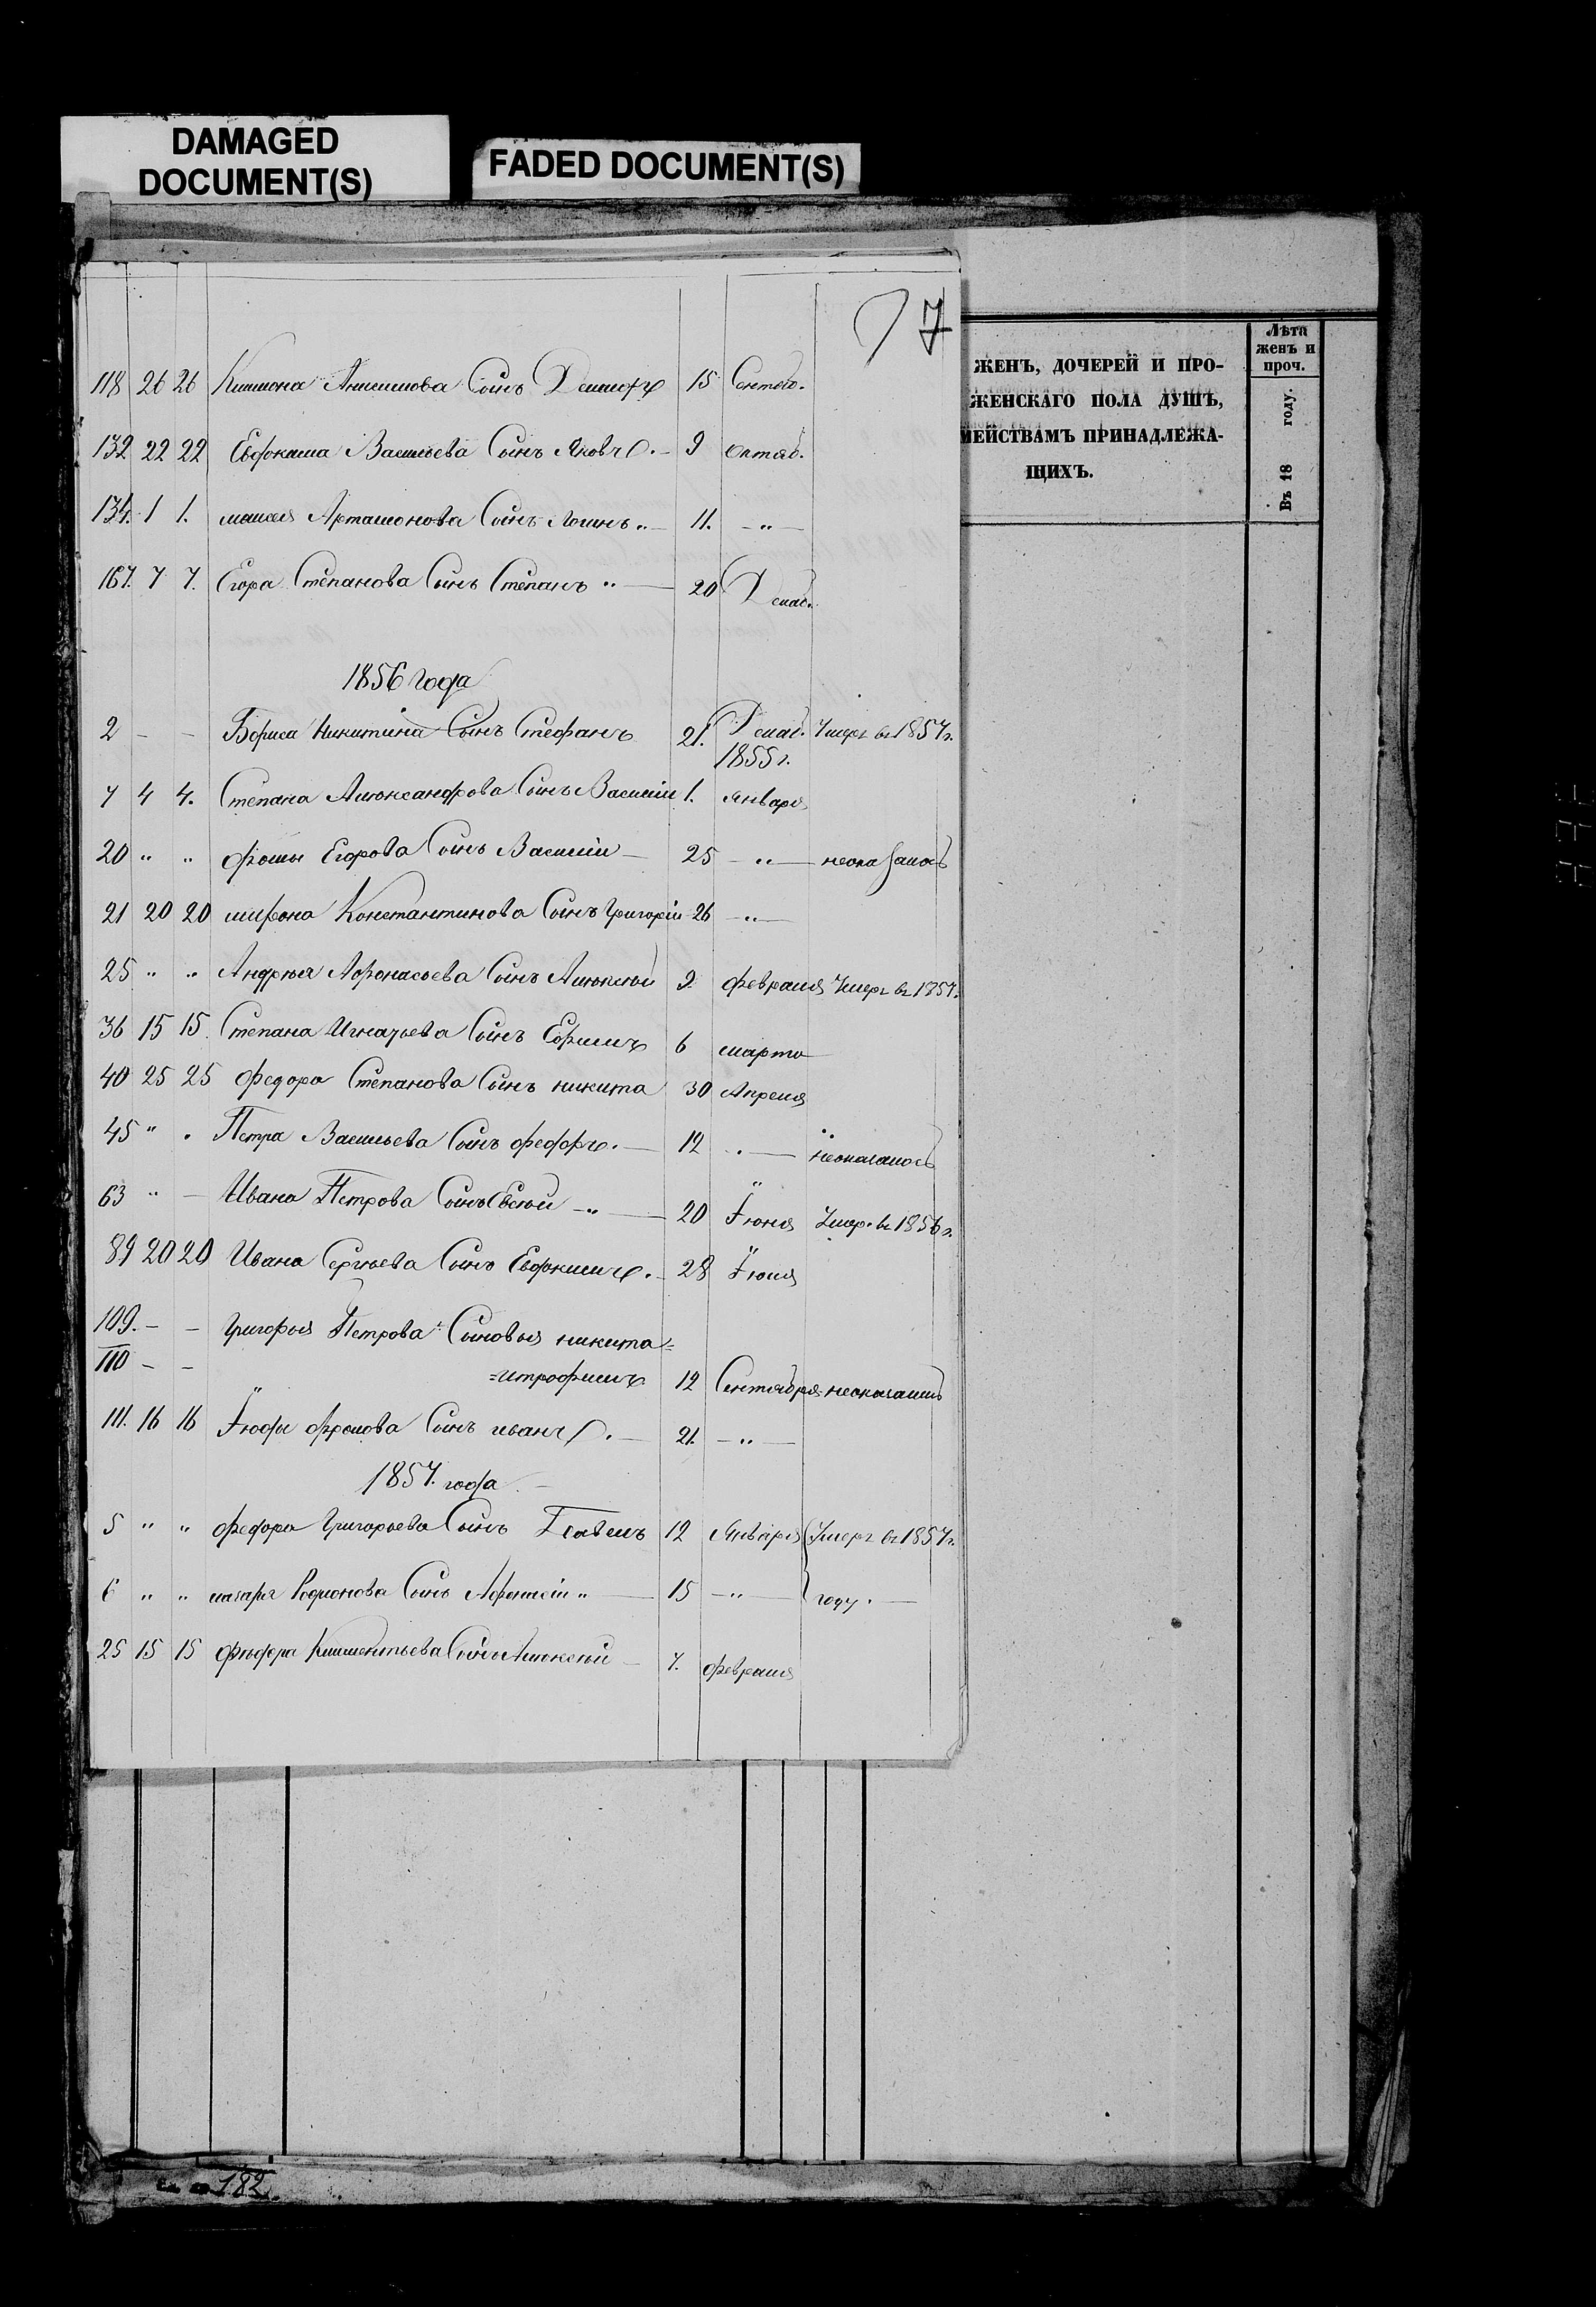 DAMAGED
DOCUMENT(S)
FADED DOCUMENT(S)
7
118 26 26 Анисимова Сынъ 15 Сентяб.
132 22 22 Евдокима Васильева Сынъ Яковъ 9 Октяб.
134. 1 1. моисея Артамонова Сынъ Логинъ „ 11. — „ —
167. 7 7. Егора Степанова Сынъ Степанъ „ — 20 Декаб.
1856 года
2 - - Бориса Никитина Сынъ Стефанъ 21. Декаб. Умеръ въ 1857 г.
1855 г.
7 4 4. Степана Александрова Сынъ Василiй 1. января
20 „ „ фомы Егорова Сынъ Василiй — 25 — „ — неоказалось
21 20 20 мирона Константинова Сынъ Григорiй 26 — „ —
25 „ „ Андрея Афонасьева Сынъ Алексей 9 февраля Умеръ въ 1857 г.
36 15 15 Степана Игнатьева Сынъ Ефимъ 6 марта
40 25 25 федора Степанова Сынъ никита 30 Апреля
45 „ „ Петра Васильева Сынъ федоръ. — 12 „ — неоказалось
63 „ — Ивана Петрова Сынъ Евсей — „ — 20 Iюня Умер. въ 1856 г.
89 20 20 Ивана Сергеева Сынъ Евдокимъ. — 28 Iюля
109. — — Григорья Петрова Сыновья никита =
110 — — = итрофимъ 12 Сентября неоказались
111. 16 16 фролова Сынъ иванъ. — 21. — „ —
1857. года
5 „ „ федора Григорьева Сынъ Павелъ 12 Января Умеръ въ 1857 г.
6 „ „ лазаря Родионова Сынъ Афонасiй „ — 15 — „ — году. —
25 15 15 федора Климентьева Сынъ Алексей — 7. февраля
ЖЕНЪ, ДОЧЕРЕЙ И ПРО-
ЖЕНСКАГО ПОЛА ДУШЪ,
МЕЙСТВАМЪ ПРИНАДЛЕЖА-
ЩИХЪ.
Лѣта
женъ и
проч.
Въ 18 году.
182.